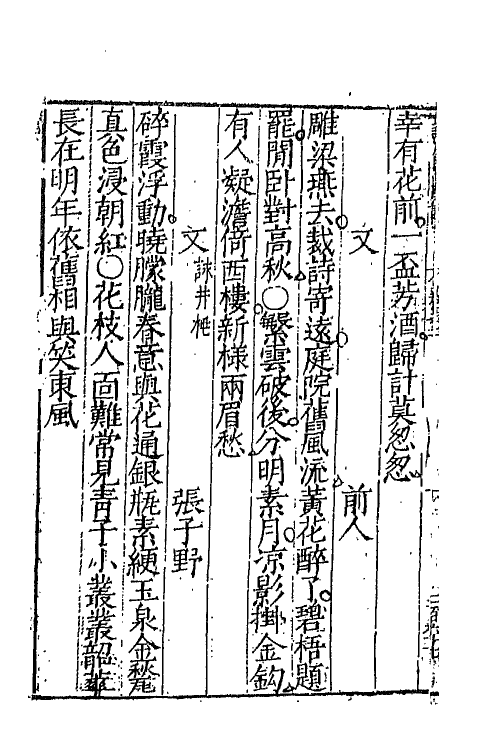 幸有花前一盃芳酒歸計莫怱怱
又　前人
雕梁燕去裁詩寄遠庭院舊風流黃花醉了碧梧題
罷閒卧對高秋○繁雲破後分明素月凉影掛金鈎
有人凝澹倚西樓新様兩眉愁
又　詠井桃　張子野
碎霞浮動曉朦朧春意與花通銀瓶素綆玉泉金甃
真色浸朝紅○花枝人面難常見青子小叢叢韶華
長在明年依舊相與笑東風